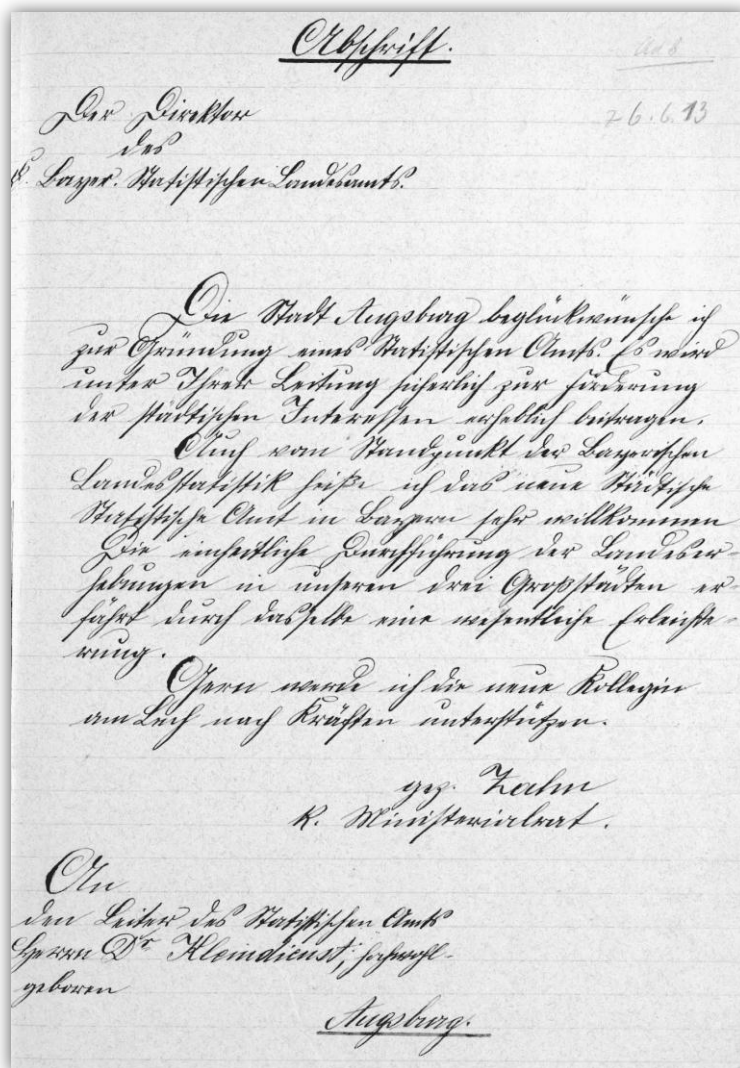 Abschrift.
26.6.13
Der Direktor
des
K. Bayer. Statistischen Landesamts.
Die Stadt Augsburg beglückwünsche ich
zur Gründung eines Statistischen Amts. Es wird
unter Ihrer Leitung sicherlich zur Förderung
der städtischen Interessen erheblich beitragen.
Auch vom Standpunkt der Bayerischen
Landesstatistik heiße ich das neue Städtische
Statistische Amt in Bayern sehr willkommen
Die einheitliche Durchführung der Landeser-
hebungen in unseren drei Großstädten er-
fährt durch dasselbe eine wesentliche Erleichte-
rung.
Gern werde ich die neue Kollegin
am Lech nach Kräften unterstützen.
gez. Zahn
K. Ministerialrat.
An
den Leiter des Statistischen Amts
Herrn Dr Kleindienst, hochwohl-
geboren
Augsburg.